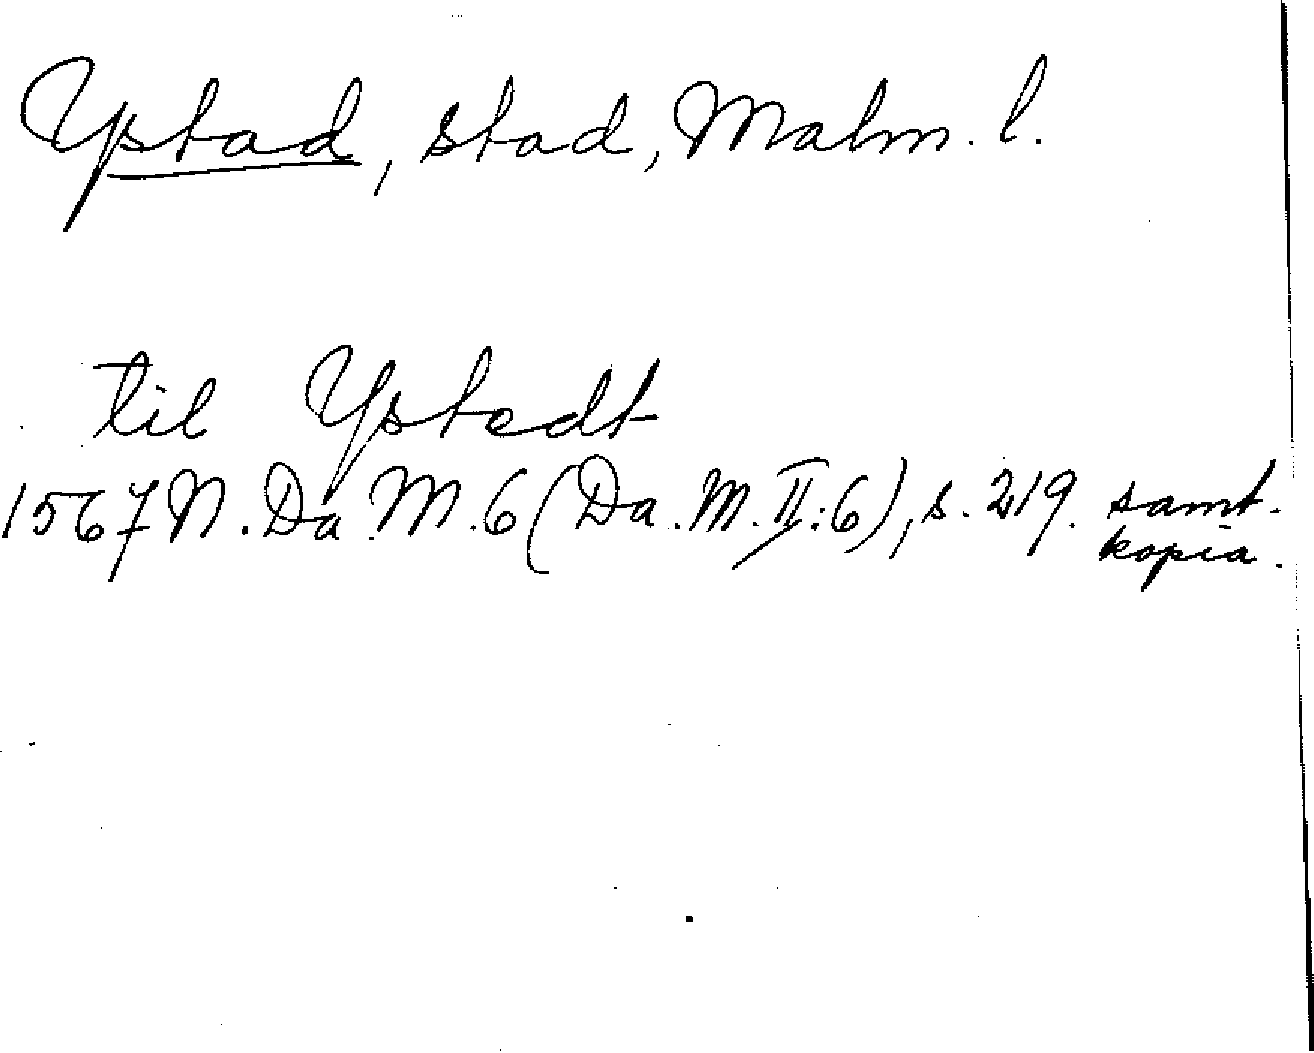 Ystad, stad, Malm. l.
til Ystedt
1567 N. Da M. 6 (Da. M. II:6), s. 219. samt.
kopia.